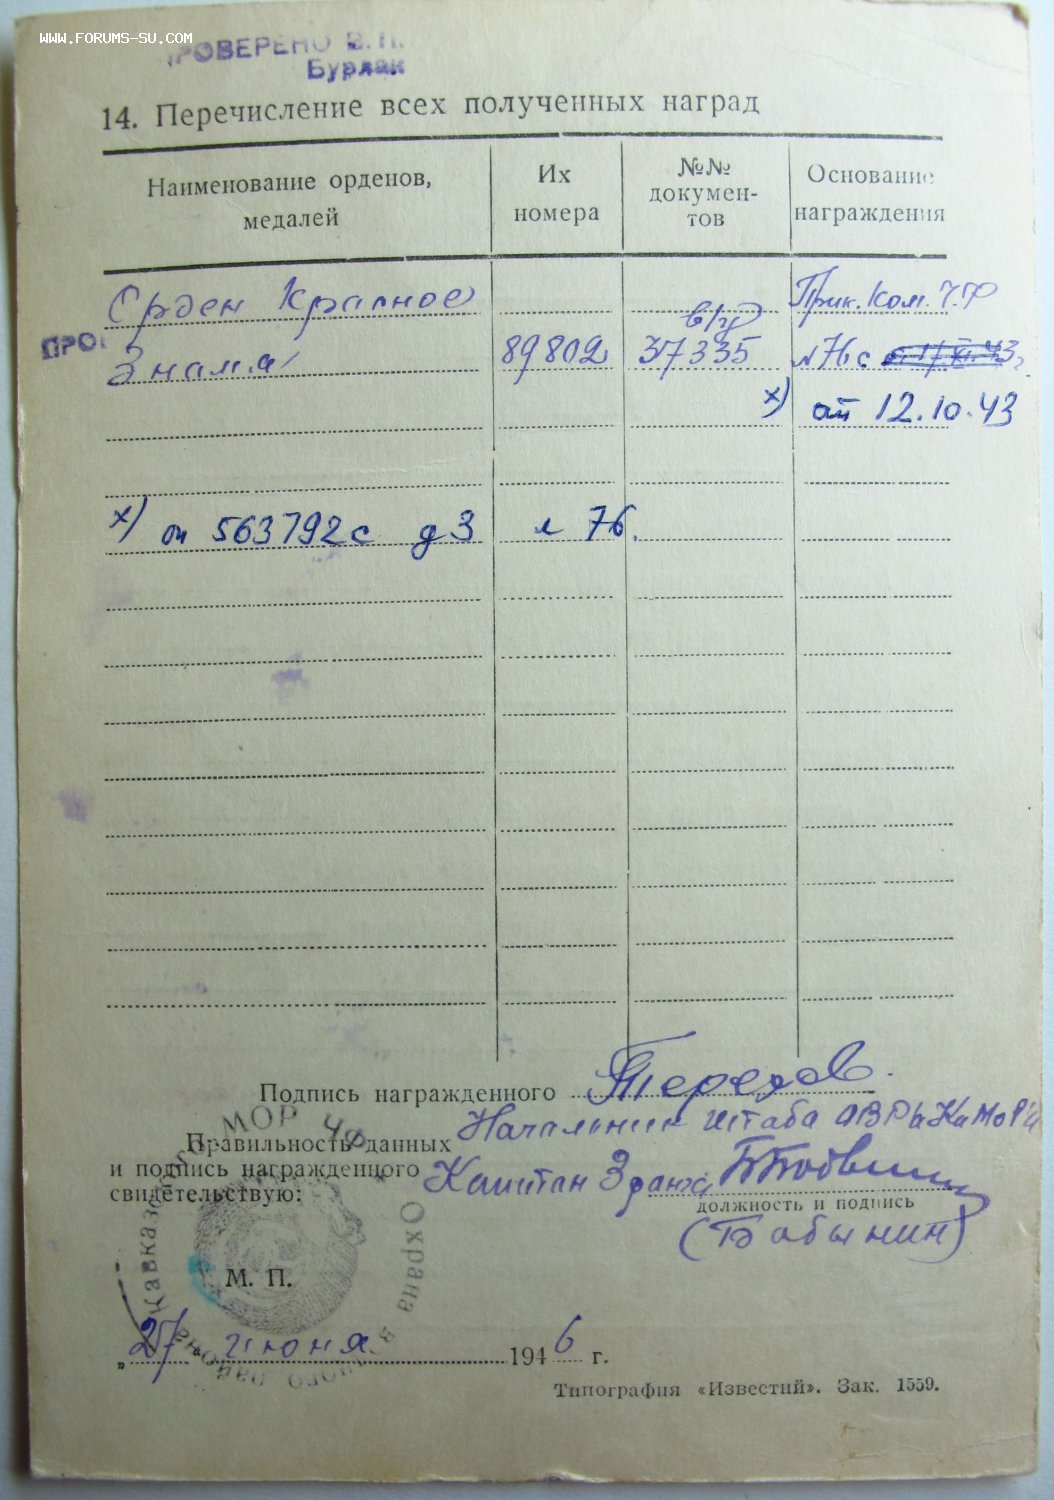 WWW.FORUMS-SU.COM
ПРОВЕРЕНО В.П.
Бурлак
14. Перечисление всех полученных наград
Наименование орденов, медалей
Их номера
№№ докумен-тов
Основание награждения
Орден Красное Прик. Ком. Ч.Ф
ПРО
в/уд
Знамя 89802 37335 №76с
х) от 12.10.43
х) оп 563792с д 3 л 76.
Подпись награжденного Терехов.
МОР ЧФ
Начальник штаба ОВР
Правильность данных
и подпись награжденного
свидетельствую:
Капитан 3 ранга
должность и подпись
(Бабынин)
Охрана в
М. П.
„27“ июня 1946 г.
Типография «Известий». Зак. 1559.